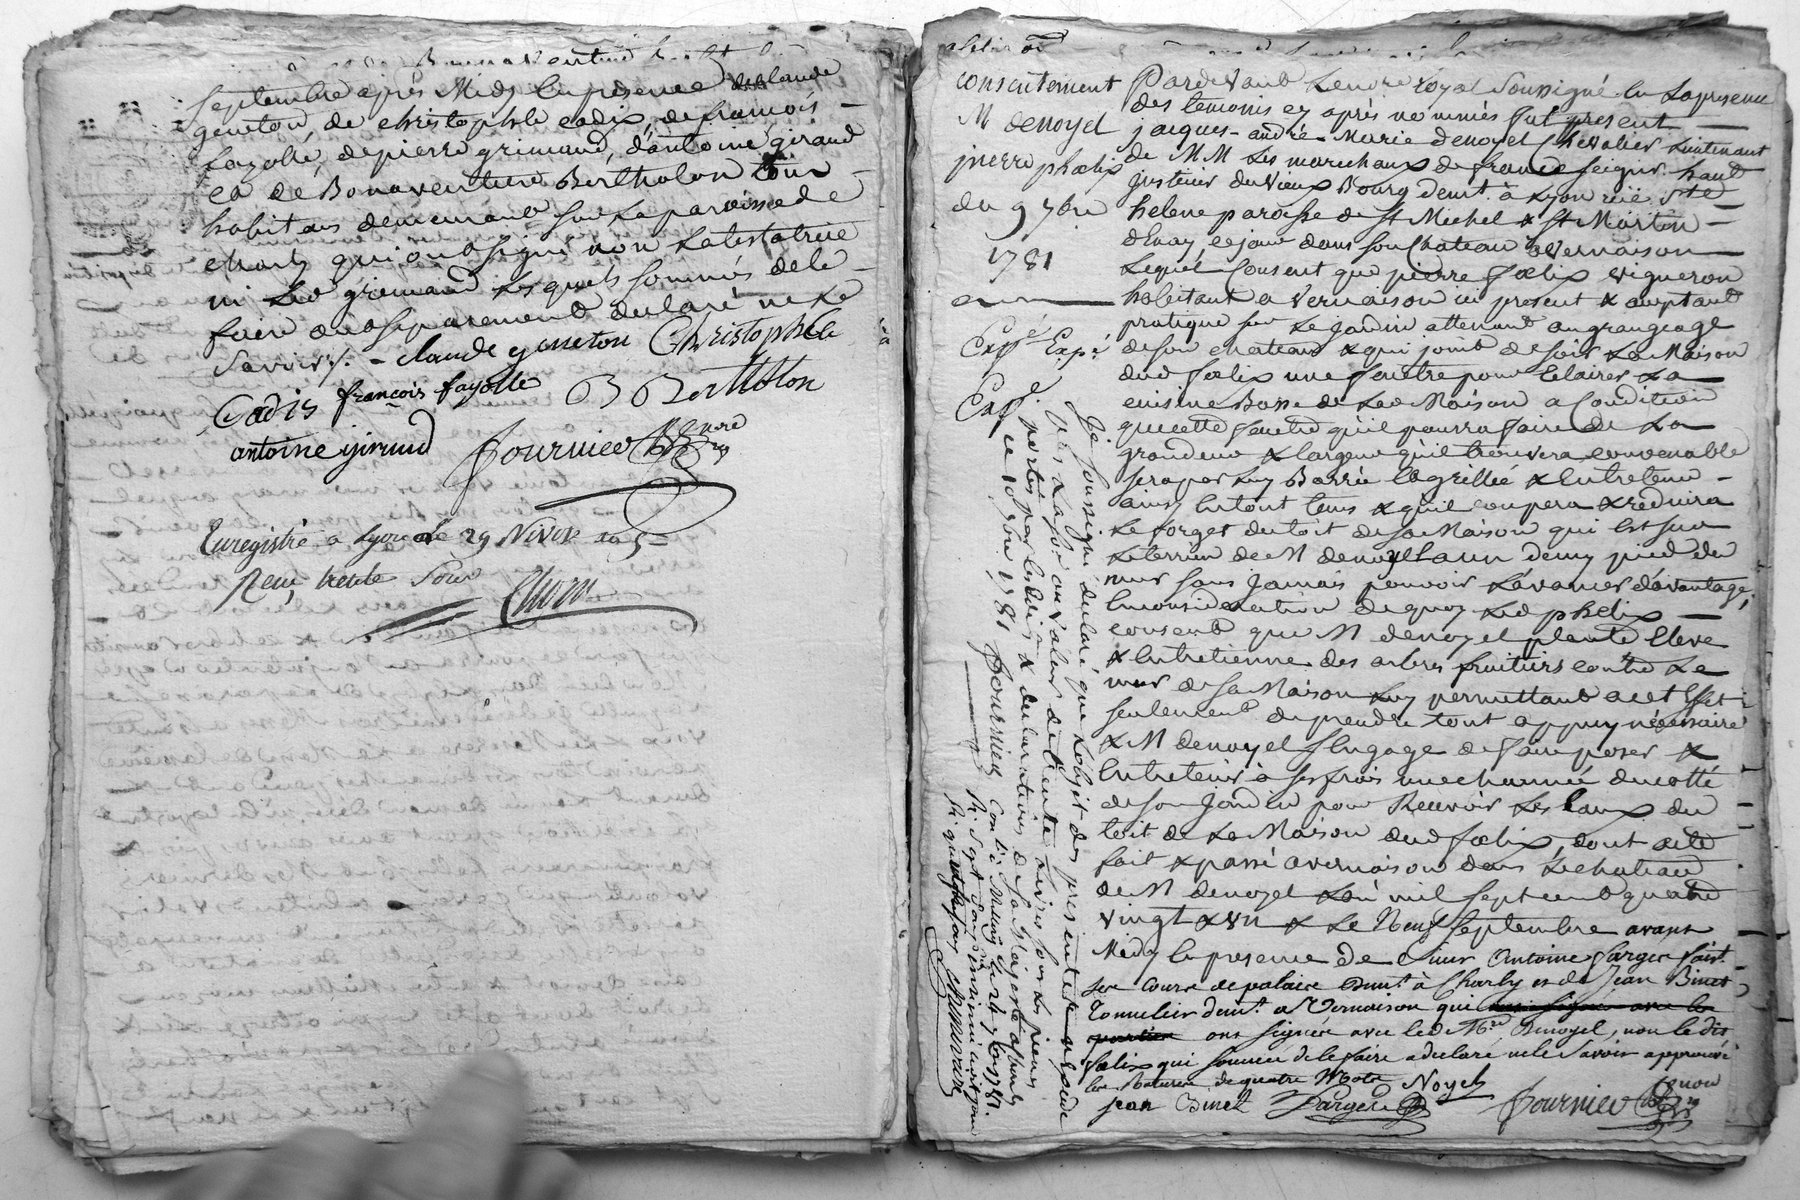 septembre après Midy En presence de Claude
geneton, de christophle cadis, de françois
fayolle, de pierre grimaud, d'antoine giraud
et de Bonaventure Bertholon tous
habitans demeurants sur la paroisse de
charly qui ont signé non la testatrice
ni led grimaud lesquels sommés de le
faire ont separement declaré ne le
Savoir ./. - claude genneton Christophle
Cadis françois fayolle B Bertholon
antoine giraud fournier Nore
Enregistré a Lyon le 29 Nivose an 5
Reçu trente Sous
consentement
M denoyel
pierre phœlix
du 9 7bre
1781
Exp.e Exp.é
Exp.e
Pardevant Lenore royal Soussigné En La presence
des temoins cy après nommés fut present
jacques-andré-Marie denoyel Chevalier Lieutenant
de MM Les marechaux de france seigr. haut
justicier du vieux Bourg demt. à Lyon rüe Ste
helene paroisse de St Michel & St Martin
d'Enay Etant dans Son Chateau a Vernaison
Lequel Consent que pierre fœlix vigneron
habitant a Vernaison ici present & acceptant
pratique sur Le jardin attenant au grangeage
de son chateau & qui joint de soir La Maison
dud fœlix une fenêtre pour Eclairer La
cuisine Basse de Lad Maison a Condition
que cette fenêtre qu'il pourra faire de La
grandeur & largeur qu'il trouvera convenable
sera par Luy Barrée Et grillée & Entretenue
ainsy En tout tems & qu'il coupera & reduira
Le forget du toit de sa Maison qui Est sur
Le terrein de M denoyel a un demy pied du
mur sans jamais pouvoir L'avancer d'avantage,
En consideration de quoy Led phelix
consent que M denoyel plante Eleve
& Entretienne des arbres fruitiers contre Le
mur de sa Maison Luy permettant a cet Effet
seulement d'y prendre tout appuy nécessaire
& M denoyel s'Engage de faire poser &
Entretenir à ses frais une channée du cotté
de son jardin pour Recevoir Les Eaux du
toit de La Maison dud fœlix, dont acte
fait & passé a vernaison dans Le chateau
de M denoyel L'an mil sept cent quatre
vingt & un & Le Neuf Septembre avant
Midy En presence de Sieur Antoine farger
demt. à Charly et de Jean Binet
Tonnelier demt. a Vernaison qui
ont Signé avec led Denoyel, non le dit
fœlix qui sommé de le faire a declaré ne le Savoir approuvé
la Rature de quatre Mots Noyel
jean Binet fargere fournier
Je soussigné declare que l'objet des presentes
n'est La somme ou valeur de trente Livres sous Les peines
portées par les Edits & declarations de Sa Majesté a charly
ce 10 7bre 1781 fournier
Con.lé à Millery Le 24 7bre 1781.